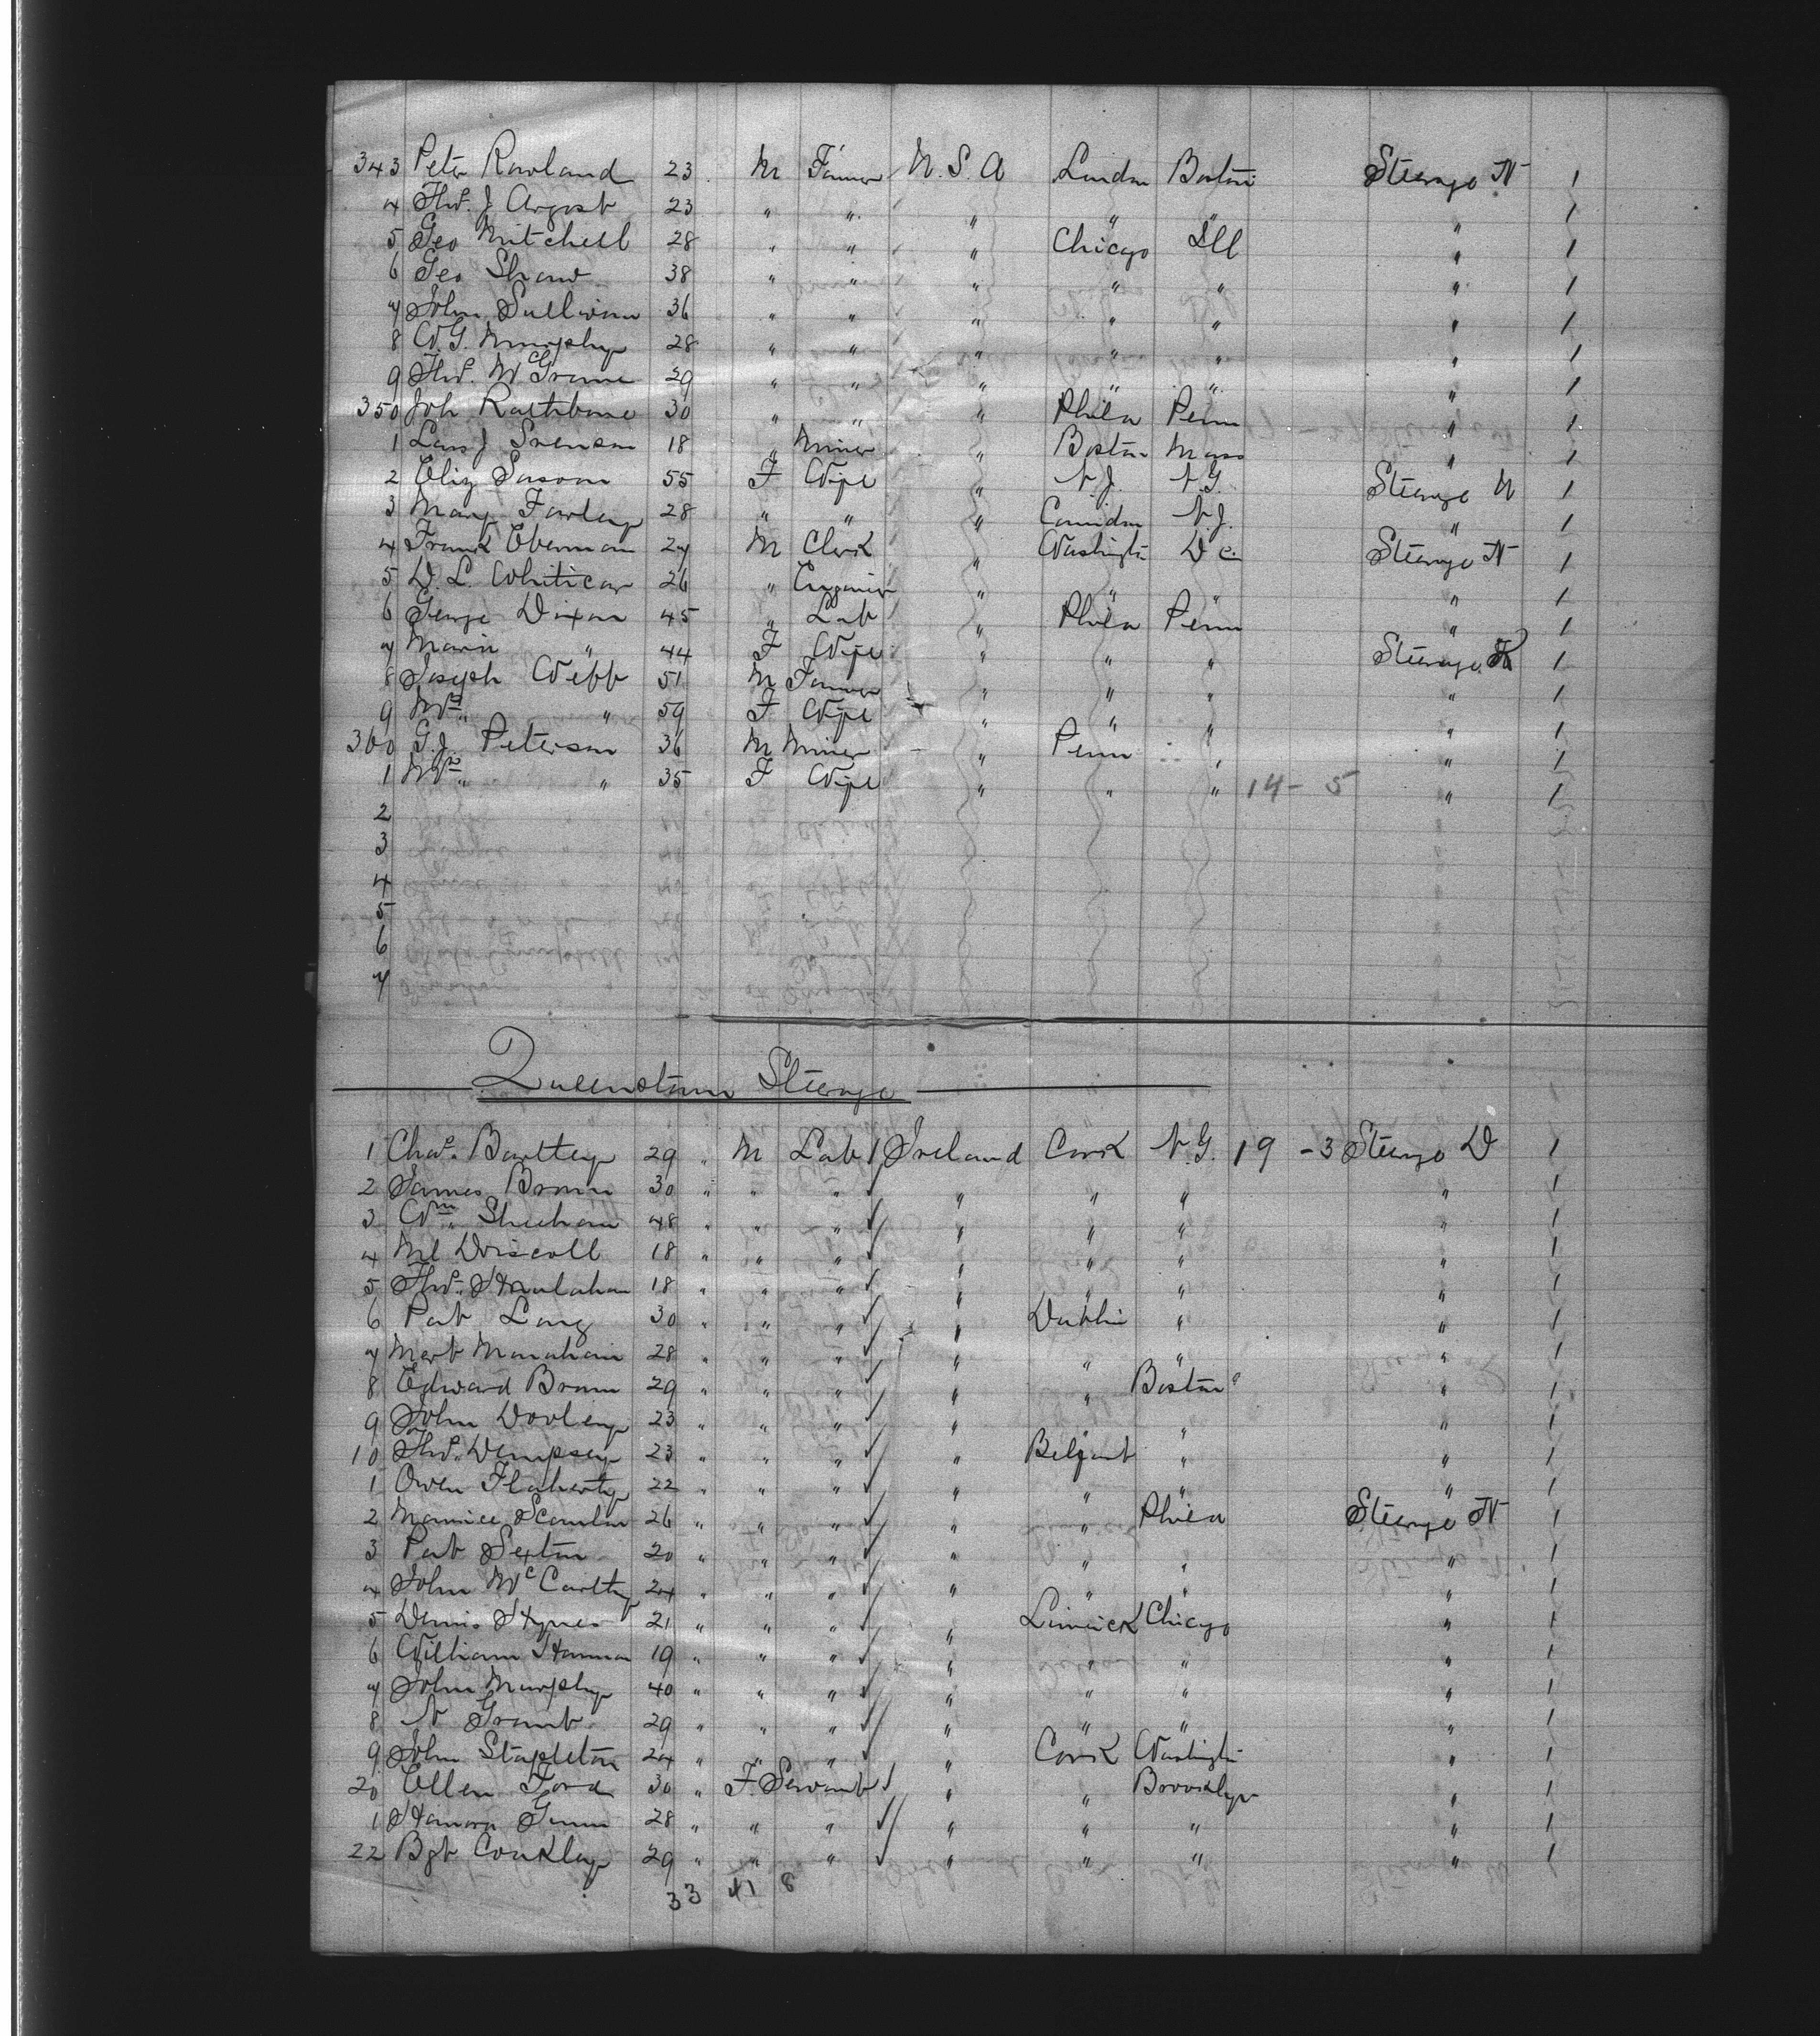 343 Peter Rowland 23 M Farmer U.S.A London Boston Steerage N 1
4 Thos. J 23 " " " " " " 1
5 Geo Mitchell 28 " " " Chicago Ill " 1
6 Geo Shaw 38 " " " " " " 1
7 John Sullivan 36 " " " " " " 1
8 W.G. Murphy 28 " " " " " " 1
9 Thos. McGrane 29 " " " " " " 1
350 Joh Rathbone 30 " " " Phila Penn " 1
1 Lars J Svenson 18 " Miner " Boston Mass " 1
2 Eliz 55 F Wife " N.J. N.Y. Steerage U 1
3 Mary Fowley 28 " " " Camden N.J. " 1
4 Frank Eberman 27 M Clerk " Washingtn D C. Steerage N 1
5 D. L. Whiticar 26 " Engineer " " " " 1
6 George Dixon 45 " Lab " Phila Penn " 1
7 Maria " 44 F Wife " " " Steerage 1
8 Joseph Webb 51 M Farmer " " " " 1
9 Mrs " " 59 F Wife " " " " 1
360 G.J. Peterson 36 M Miner " Penn " " 1
1 Mrs " " 35 F Wife " " " 14 - 5 " 1
2
3
4
5
6
7
Queenstown Steerage
1 Chas. Bartley 29 " M Lab Ireland Cork N.Y. 19 - 3 Steerage D 1
2 James Brown 30 " " " " " " " 1
3 Wm. Sheehan 48 " " " " " " " 1
4 Ml Driscoll 18 " " " " " " " 1
5 Thos. Hanlahan 18 " " " " " " " 1
6 Pat Long 30 " " " " Dublin " " 1
7 Mart Manahan 28 " " " " " " " 1
8 Edward Brown 29 " " " " " Boston " 1
9 John Dooley 23 " " " " " " " 1
10 Thos. Dempsey 23 " " " " Belfast " " 1
1 Owen Flaherty 22 " " " " " " " 1
2 Maurice Scanlan 26 " " " " " Phila Steerage N 1
3 Pat Sexton 20 " " " " " " " 1
4 John McCarthy 24 " " " " " " " 1
5 Dennis Hynes 21 " " " " Limrick Chicago " 1
6 William Hannan 19 " " " " " " " 1
7 John Murphy 40 " " " " " " " 1
8 N Grant 29 " " " " " " " 1
9 John Stapleton 24 " " " " Cork Washingtn " 1
20 Ellen Ford 30 " F Servant " " Brooklyn " 1
1 Hanora Gunn 28 " " " " " " " 1
22 Bgt Conkley 29 " " " " " " " 1
33 41 8